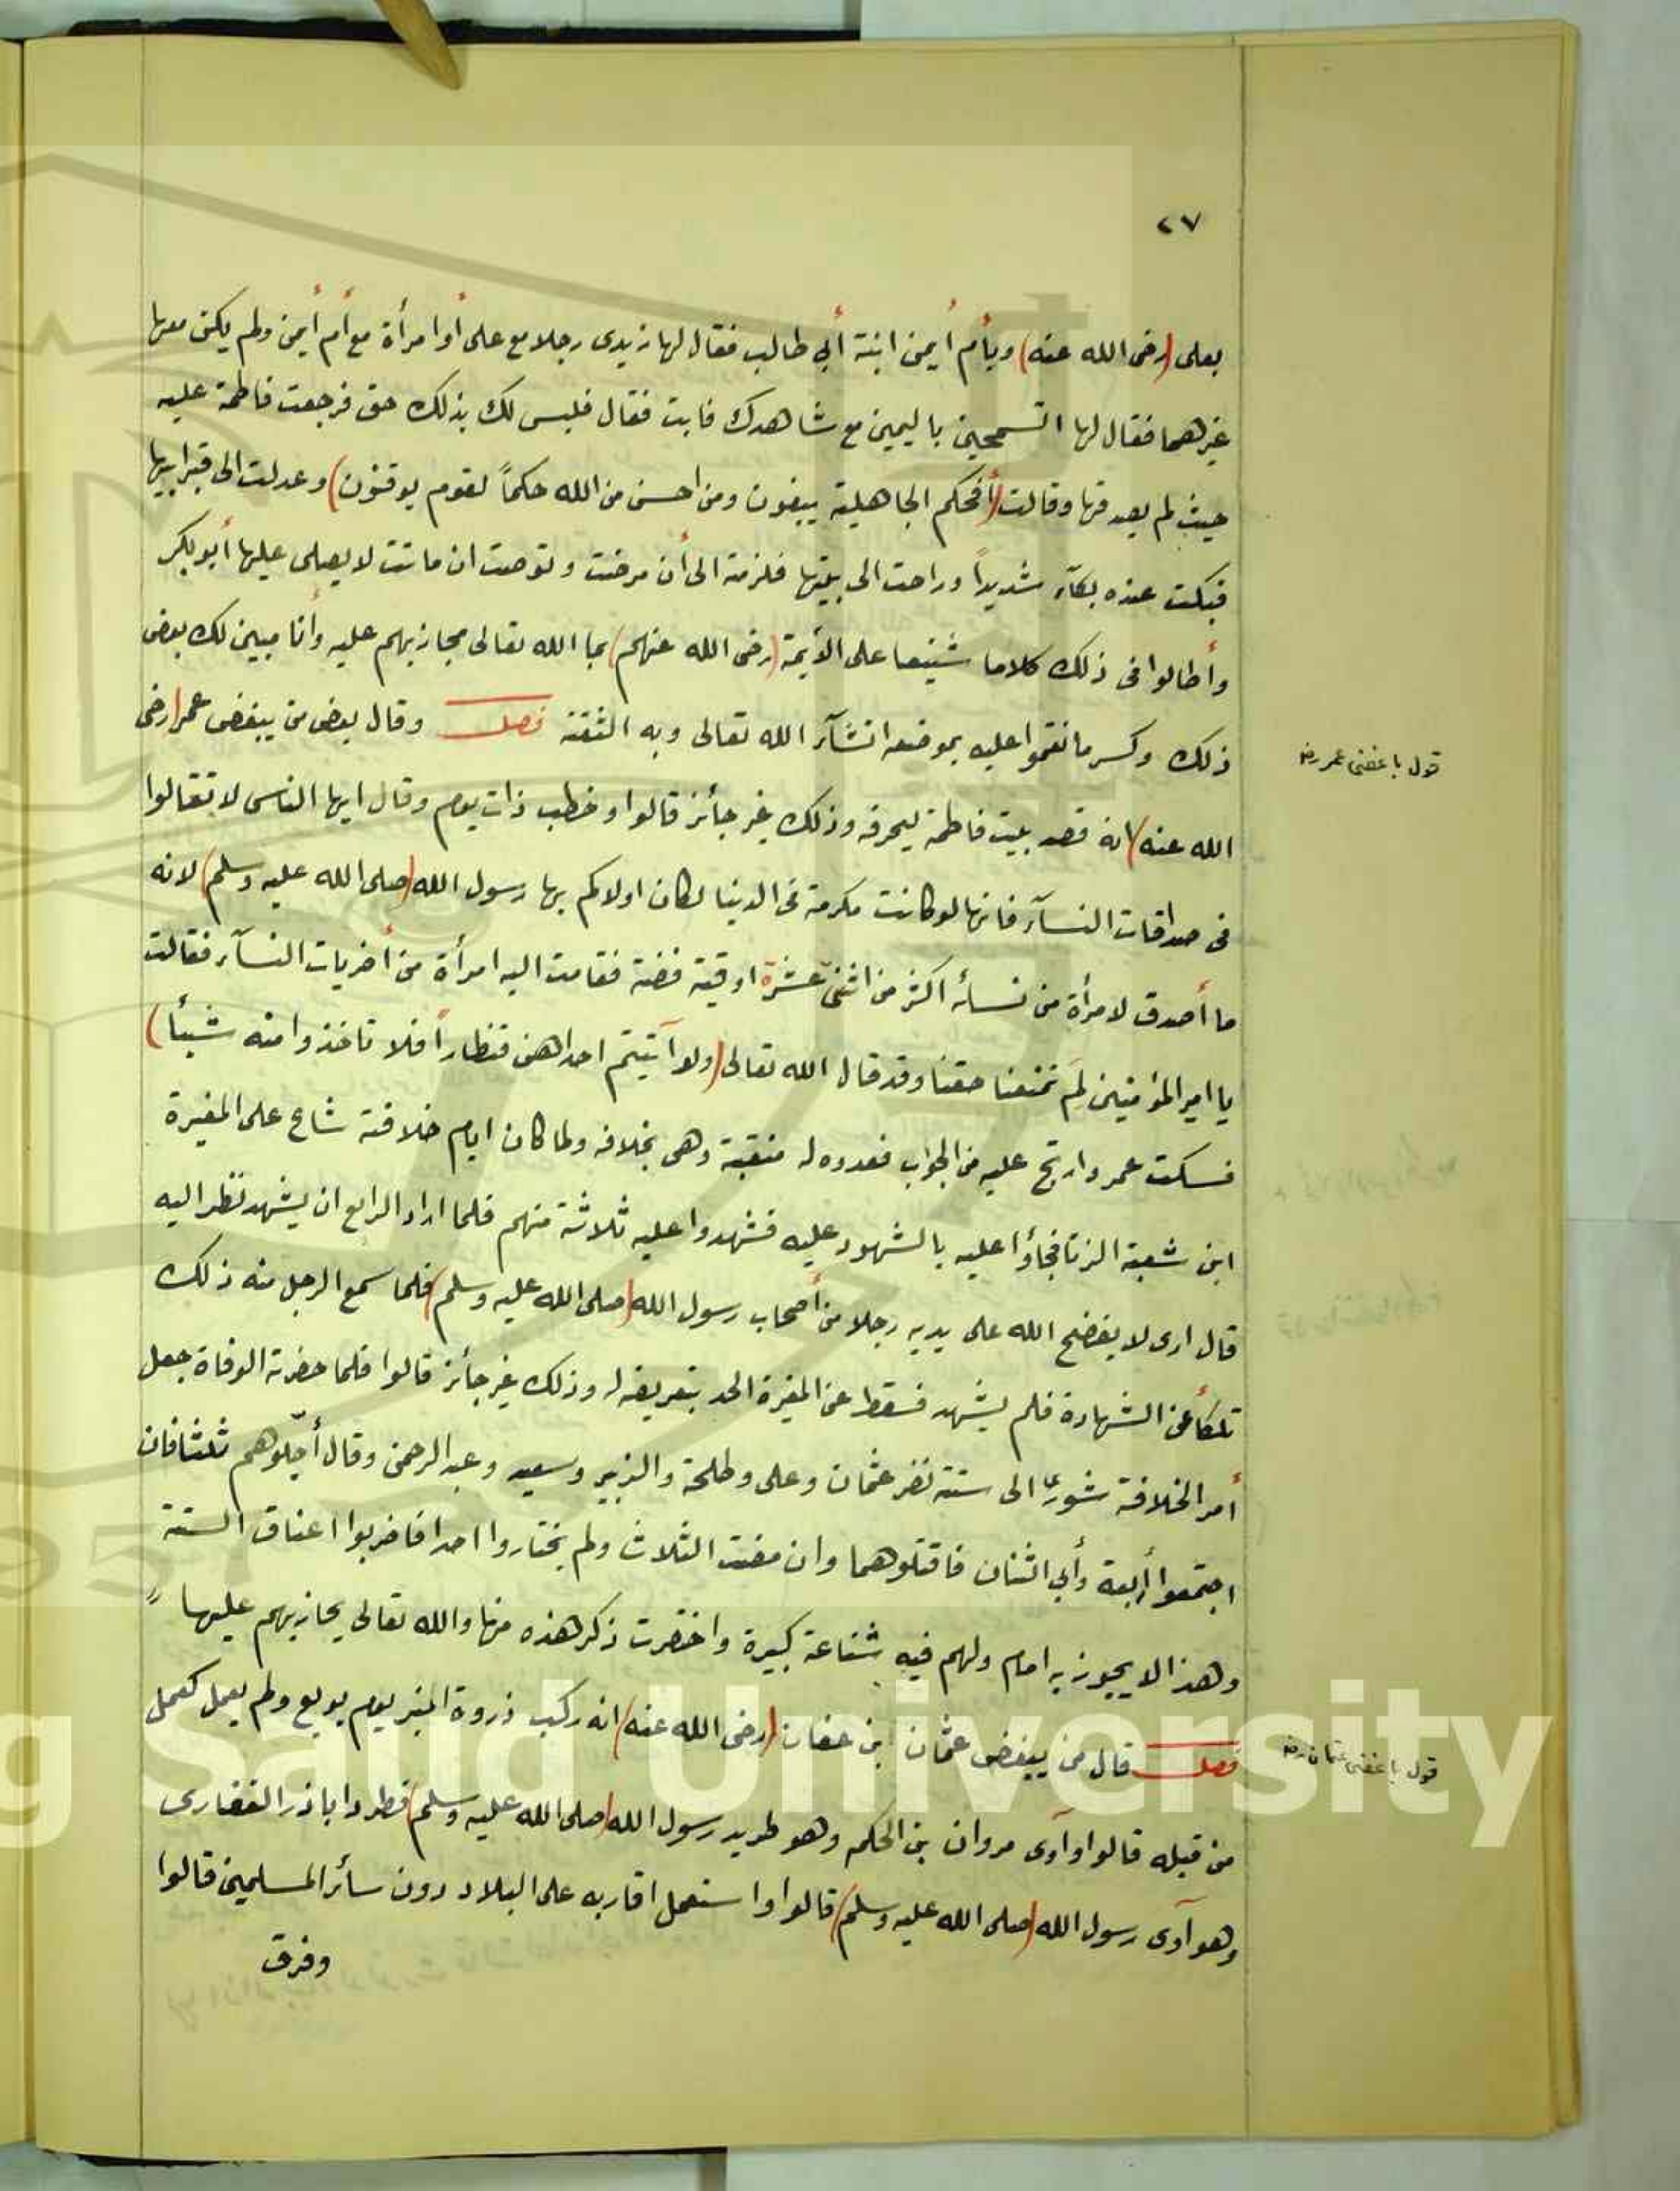 ٢٧
بعلى (رضى الله عنه) وبأم أيمن ابنة أبى طالب فقال لها زيدى رجلا مع على أوا مرأة مع أم أيمن ولم يكن معها
غيرهما فقال لها اتسمحين باليمين مع شاهدك فابت فقال فليس لك بذلك حق فرجعت فاطمة عليه
حيث لم يصدقها وقالت (أفحكم الجاهلية يبغون ومن احسن من الله حكماً لقوم يوقنون) وعدلت الى قبر ابيها
فبكت عنده بكآء شديداً وراحت الى بيتها فلزمته الى أن مرضت وتوصت ان ماتت لا يصلى عليها أبو بكر
وأطالوا فى ذلك كلاما شنيعا على الأيمة (رضى الله عنهم) بما الله تعالى مجازيهم عليه وأنا مبين لك بعض
ذلك وكسر ما نقموا عليه بموضعه انشآء الله تعالى وبه الثقة فصل وقال بعض من يبغض عمر (رضى
قول باغضى عمر رضه
الله عنه) انه قصد بيت فاطمة ليحرقه وذلك غير جائز قالوا وخطب ذات يوم وقال ايها الناس لا تغالوا
فى صداقات النسآء فانها لو كانت مكرمة فى الدنيا لكان اولاكم بها رسول الله (صلى الله عليه وسلم) لانه
ما أصدق لامرأة من نسائه اكثر من اثنى عشرة اوقية فضة فقامت اليه امرأة من أخريات النسآء فقالت
يا امير المؤمنين لَم تمنعنا حقنا وقد قال الله تعالى (ولو آتيتم احداهن قنطاراً فلا تاخذوا منه شيئا)
فسكت عمر وارتج عليه من الجواب فعدوه له منقبة وهى بخلافه ولما كان ايام خلافته شاع على المغيرة
ابن شعبة الزنا فجاؤا عليه بالشهود عليه فشهدوا عليه ثلاثة منهم فلما اراد الرابع ان يشهد نظر اليه
قال ارى لا يفضح الله على يديه رجلا من أصحاب رسول الله (صلى الله عليه وسلم) فلما سمع الرجل منه ذلك
تلكأ عن الشهادة فلم يشهد فسقط عن المغيرة الحد بتعريضه له وذلك غير جائز قالوا فلما حضرته الوفاة جعل
أمر الخلافة شورى الى ستة نفر عثمان وعلى وطلحة والزبير وسعيد وعبد الرحمن وقال أجّلوهم ثلثا فان
اجتمعوا أربعة وأبى اثنان فاقتلوهما وان مضت الثلاث ولم يختاروا احدا فاضربوا اعناق الستة
وهذا لا يجوز به امام ولهم فيه شناعة كبيرة واختصرت ذكر هذه منها والله تعالى يجازيهم عليها
فصل قال من يبغض عثمان بن عفان (رضى الله عنه) انه ركب ذروة المنبر يوم بويع ولم يعمل كعمل
قول باغضى عثمان رضه
من قبله قالوا وآوى مروان بن الحكم وهو طريد رسول الله (صلى الله عليه وسلم) فطرد اباذر الغفارى
وهو آوى رسول الله (صلى الله عليه وسلم) قالوا واستعمل اقاربه على البلاد دون سائر المسلمين قالوا
وفرق
g Saud University